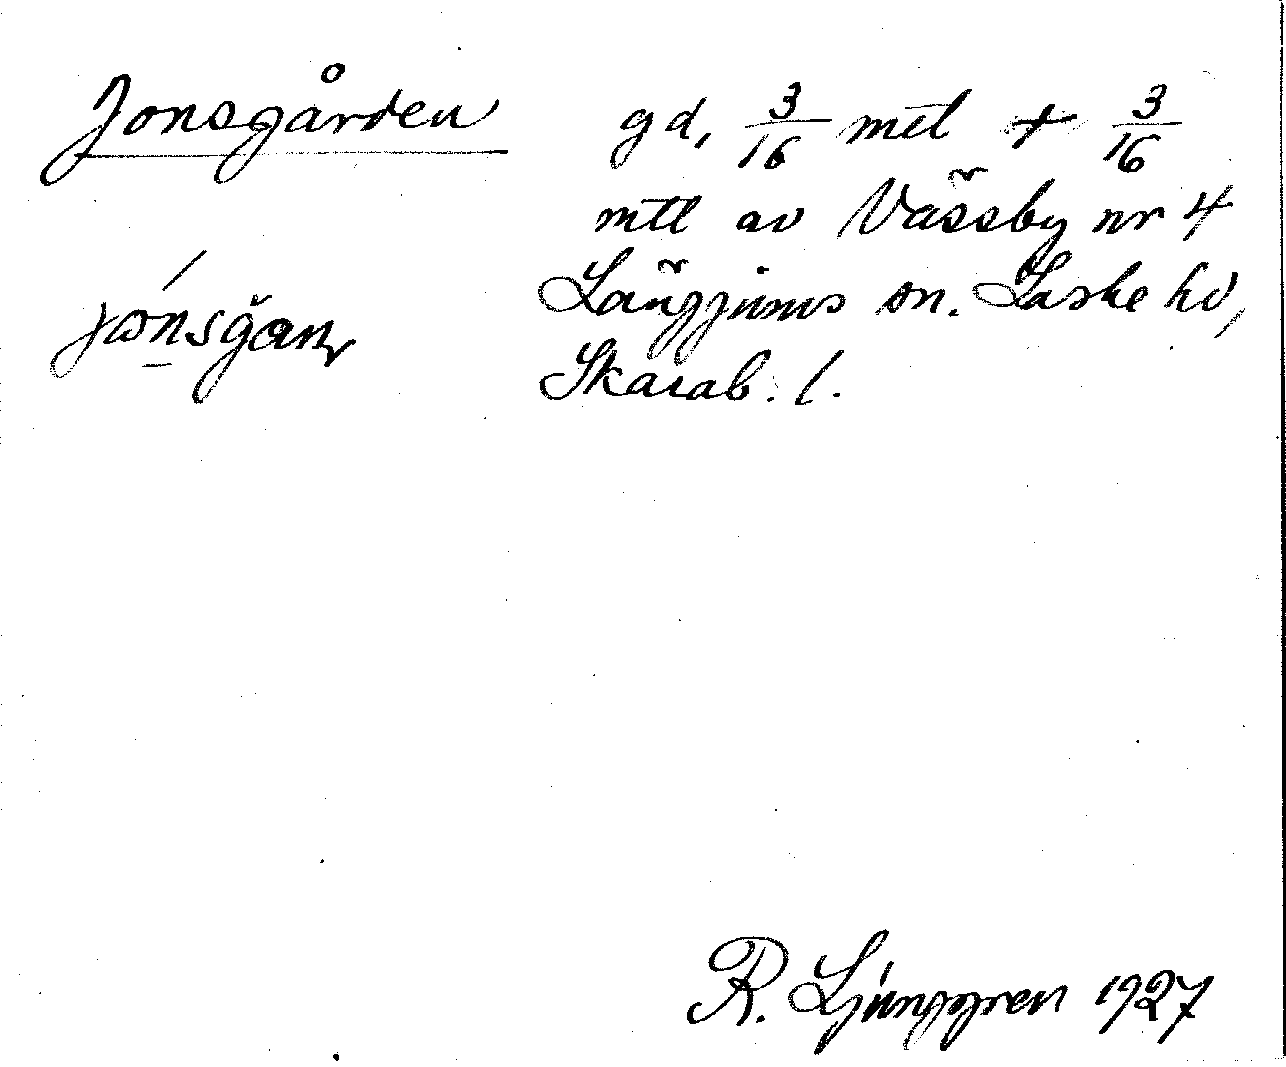 Jonsgården gd, 3/16 mtl + 3/16
mtl av Vässby nr 4
Längjums sn. Laske hd,
Skarab. l.
R. Ljunggren 1927